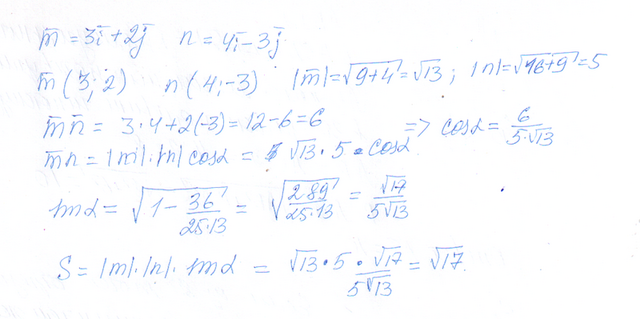 m̄ = 3ī + 2j̄  n = 4ī - 3j̄
m̄ (3; 2)  n (4; -3)  |m̄| = √(9+4) = √13 ; |n| = √(16+9) = 5
m̄ n̄ = 3·4 + 2(-3) = 12 - 6 = 6
=> cosα = 6/(5·√13)
m̄n = |m̄|·|n| cosα = √13 · 5 · cosα
sinα = √(1 - 36/(25·13)) = √(289/(25·13)) = √17/(5√13)
S = |m|·|n|· sinα = √13 · 5 · √17/(5√13) = √17.